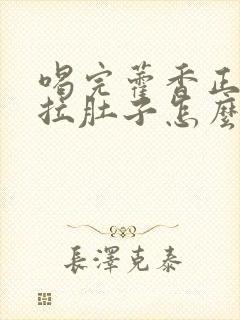 喝完藿香正
拉肚子怎麼
長澤克泰